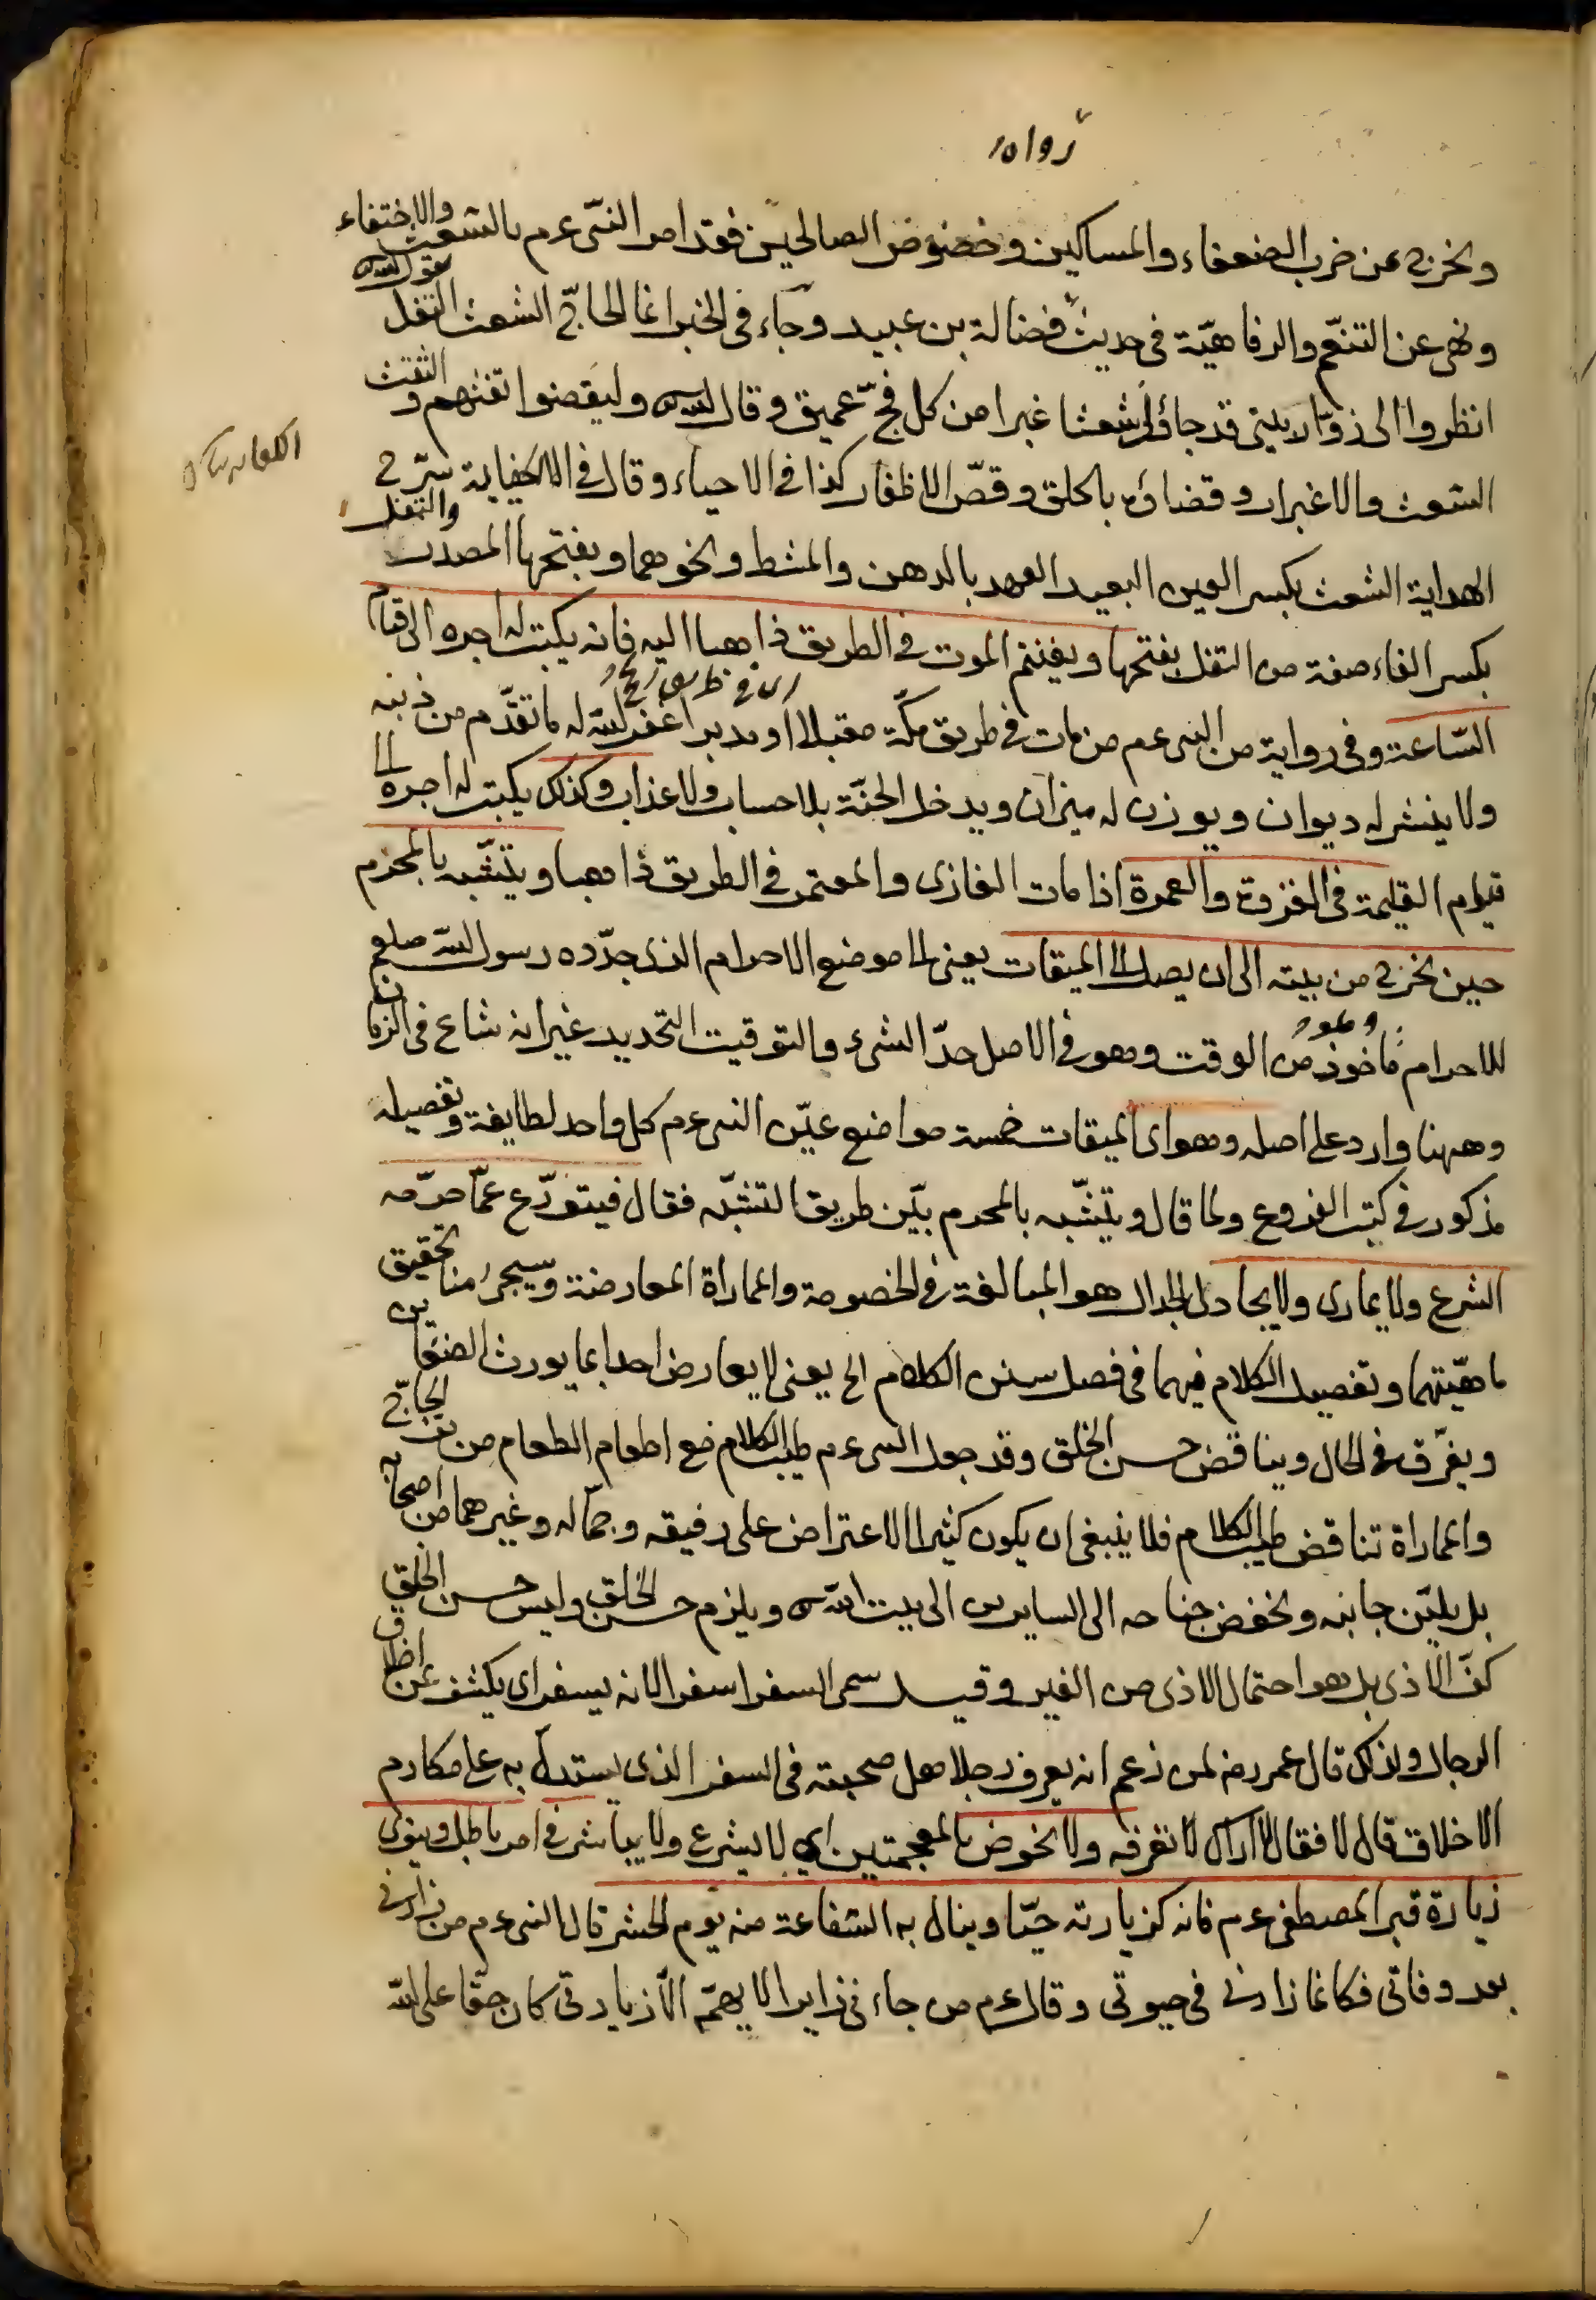 رواه
ويخرج من حزب الضعفاء والمساكين وخصوص الصالحين فقد امر النبى عم بالشعث والاختفاء
ونهى عن التنعّم والرفاهيّة فى حديث فضالة بن عبيد وجآء فى الخبر انما الحاجّ الشعث التفل يقول الله
انظروا الى زوّار بيتى قد جاؤنى شعثا غبرا من كل فجّ عميق وقال الله ى وليقضوا تفثهم والتفث
الشعث والاغبرار وقضاؤه بالحلق وقصّ الاظفار كذا فى الاحياء وقال فى الكفاية شرح
الهداية الشعث بكسر العين البعيد العهد بالدهن والمشط ونحوهما وبفتحها المصدر والتفل
بكسر الفاء صفة من التفل بفتحها ويغتنم الموت فى الطريق ذاهبا اليه فانه يكتب له اجره الى قيام
السّاعة وفى رواية من النبى عم من مات فى طريق مكّة مقبلا او مدبرا غفر الله له ما تقدّم من ذنبه
ولا ينشر له ديوان ويوزن له ميزان ويدخل الجنّة بلا حساب ولا عذاب وكذلك يكتب له اجره الى
قيام القيمة فى الغزوة والعمرة اذا مات الغازى والمعتمر فى الطريق ذاهبا ويتشبّه بالمحرم
حين يخرج من بيته الى ان يصل الى الميقات يعنى الى موضع الاحرام الذى حدّده رسول الله صلعم
للاحرام مأخوذ من الوقت وهو فى الاصل حدّ الشىء والتوقيت التحديد غير انه شاع فى الزمان
وههنا وارد على اصله وهو اى الميقات خمسة مواضع عيّن النبى عم كل واحد لطايفة وتفصيله
مذكور فى كتب الفروع ولما قال ويتشبّه بالمحرم بيّن طريق التشبّه فقال فيتورّع عمّا حرّمه
الشرع ولا يمارى ولا يجادل الجدال هو المبالغة فى الخصومة والمماراة المعارضة وسيجئ منا تحقيق
ماهيّتهما وتفصيل الكلام فيهما فى فصل سنن الكلام الخ يعنى لا يعارض احدا بما يورث الضغاين
ويفرّق فى الحال ويناقض حسن الخلق وقد جعل النبى عم طيب الكلام مع اطعام الطعام من برّ الحاجّ
والمماراة تناقض طيب الكلام فلا ينبغى ان يكون كثير الاعتراض على رفيقه وجمّاله وغيرهما من اصحابه
بل يليّن جانبه ويخفض جناحه الى السايرين الى بيت الله ى ويلزم حسن الخلق وليس حسن الخلق
كفّ الاذى بل هو احتمال الاذى من الغير وقيل سمى السفر سفرا لانه يسفر اى يكشف عن اخلاق
الرجال ولذلك قال عمر رضه لمن زعم انه يعرف رجلا هل صحبته فى السفر الذى يستدلّ به على مكارم
الاخلاق قال لا فقال لا اراك لا تعرفه ولا يخوض بالمعجمتين اى لا يشرع ولا يباشر فى امر باطل وينوى
زيارة قبر المصطفى عم فانه كزيارته حيّا وينال به الشفاعة منه يوم الحشر قال النبى عم من زارنى
بعد وفاتى فكانما زارنى فى حيوتى وقال عم من جاءنى زايرا لا يهمّه الّا زيارتى كان حقّا على الله